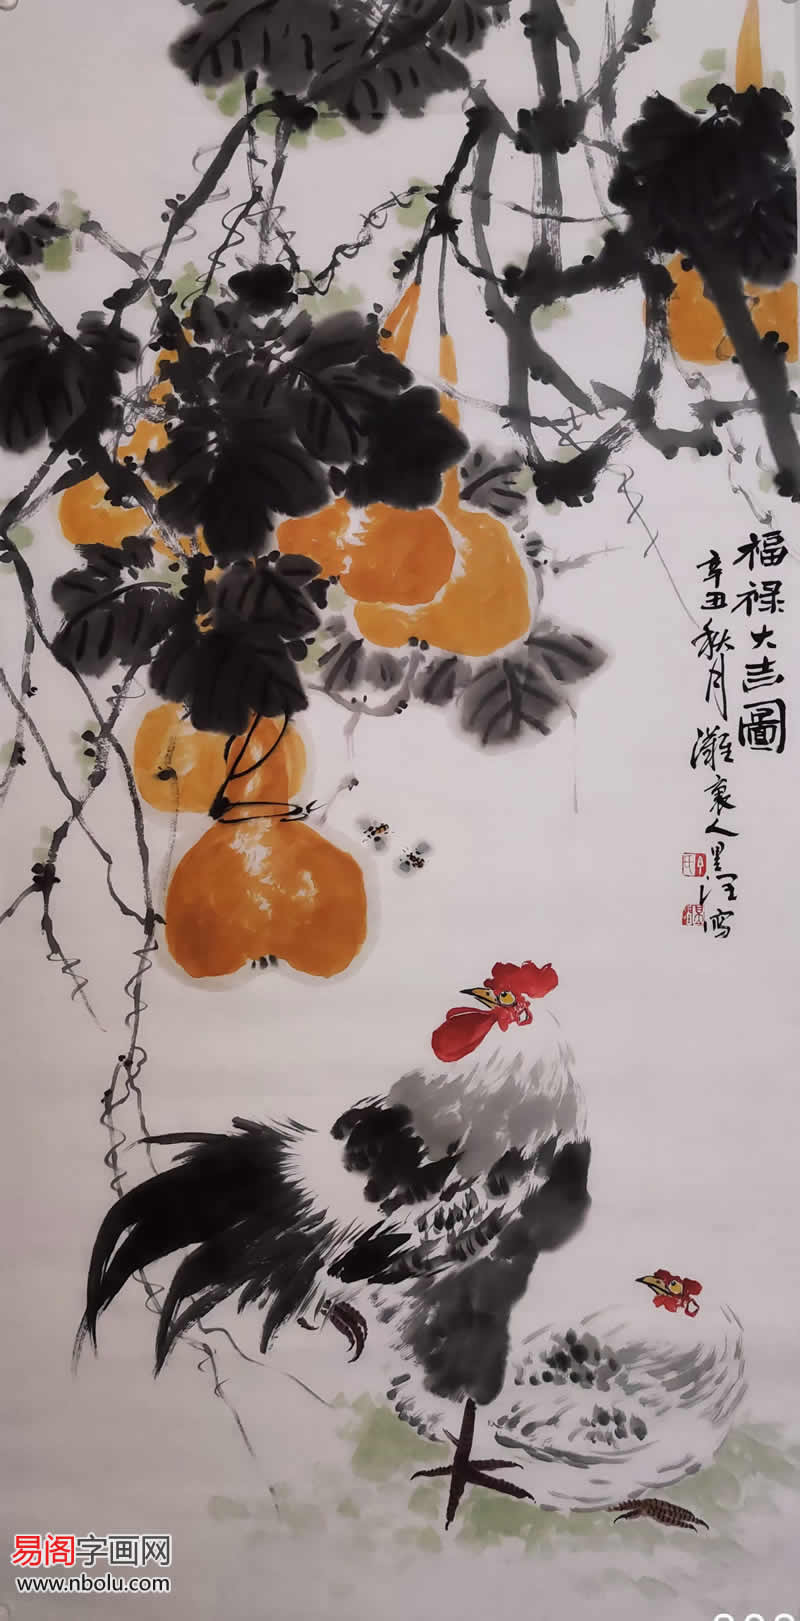 福禄大吉圖
辛丑秋月 灘裏人墨江寫
易阁字画网
www.nbolu.com